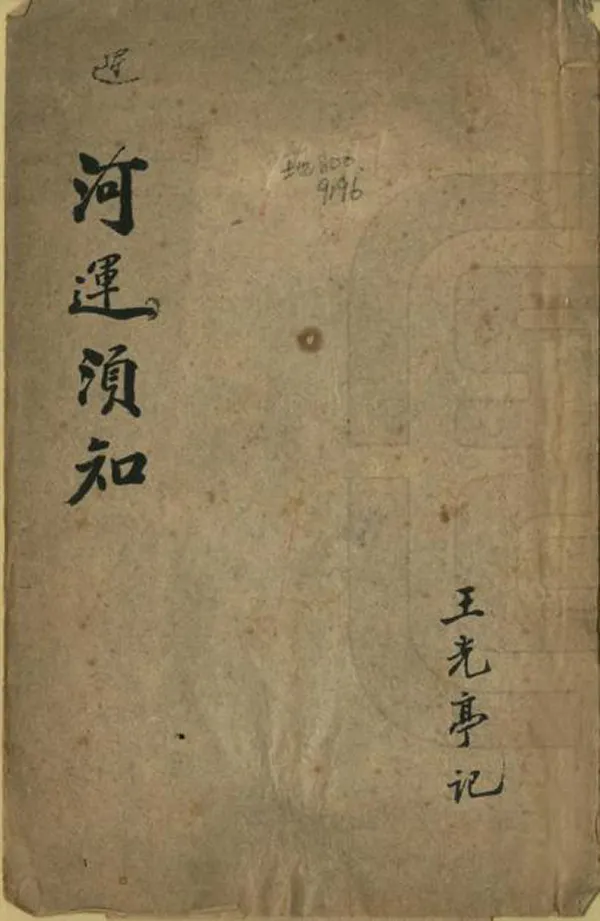 河運須知
地800
9196
王光亭记